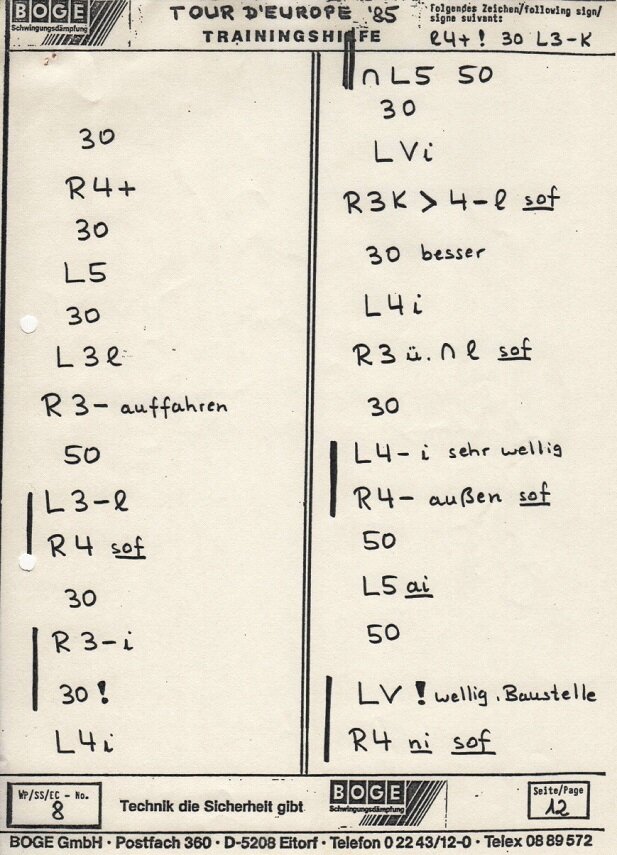 BOGE
Schwingungsdämpfung
TOUR D'EUROPE '85
TRAININGSHILFE
Folgendes Zeichen/following sign/
signe suivant:
R4+! 30 L3-K
30
R4+
30
L5
30
L3l
R3- auffahren
50
L3-l
R4 sof
30
R3-i
30!
L4i
∩ L5 50
30
LVi
R3K > 4-l sof
30 besser
L4i
R3 ü. ∩ l sof
30
L4-i sehr wellig
R4- außen sof
50
L5 ai
50
LV ! wellig, Baustelle
R4 ni sof
WP/SS/EC - No.
8
Technik die Sicherheit gibt
BOGE
Schwingungsdämpfung
Seite/Page
12
BOGE GmbH · Postfach 360 · D-5208 Eitorf · Telefon 0 22 43/12-0 · Telex 08 89 572